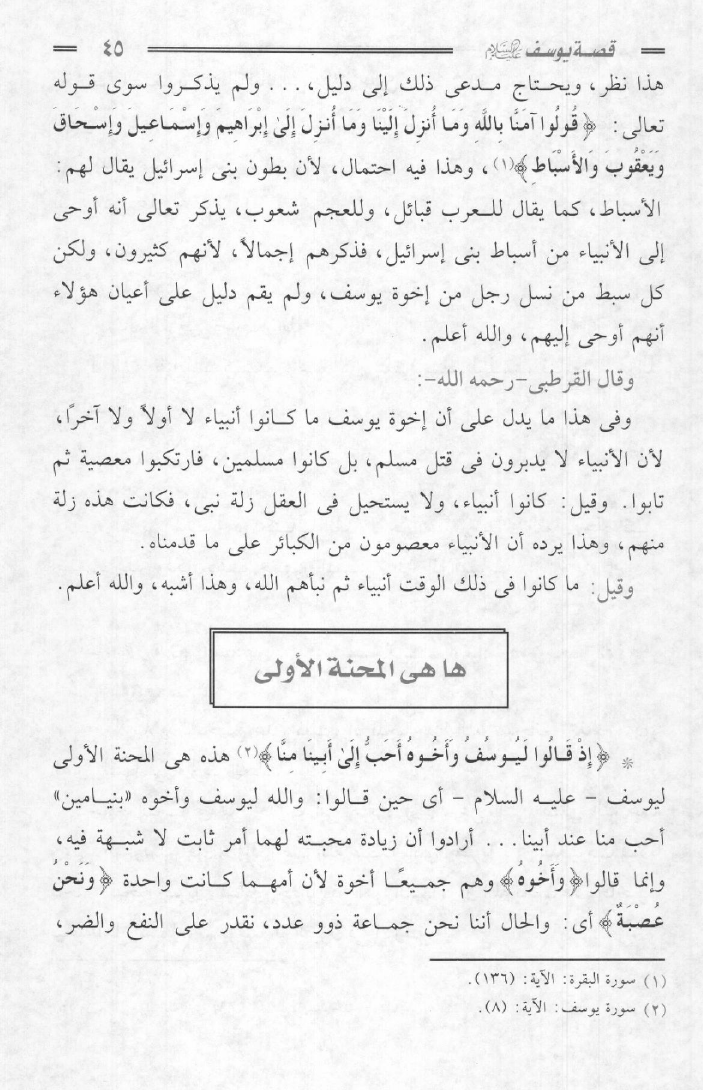 قصة يوسف عليه السلام ٤٥
هذا نظر، ويحتاج مدعى ذلك إلى دليل، ... ولم يذكروا سوى قوله
تعالى: ﴿قُولُوا آمَنَّا بِاللَّهِ وَمَا أُنزِلَ إِلَيْنَا وَمَا أُنزِلَ إِلَىٰ إِبْرَاهِيمَ وَإِسْمَاعِيلَ وَإِسْحَاقَ
وَيَعْقُوبَ وَالأَسْبَاطِ﴾(١)، وهذا فيه احتمال، لأن بطون بنى إسرائيل يقال لهم:
الأسباط، كما يقال للعرب قبائل، وللعجم شعوب، يذكر تعالى أنه أوحى
إلى الأنبياء من أسباط بنى إسرائيل، فذكرهم إجمالاً، لأنهم كثيرون، ولكن
كل سبط من نسل رجل من إخوة يوسف، ولم يقم دليل على أعيان هؤلاء
أنهم أوحى إليهم، والله أعلم.
وقال القرطبى-رحمه الله-:
وفى هذا ما يدل على أن إخوة يوسف ما كانوا أنبياء لا أولاً ولا آخرًا،
لأن الأنبياء لا يدبرون فى قتل مسلم، بل كانوا مسلمين، فارتكبوا معصية ثم
تابوا. وقيل: كانوا أنبياء، ولا يستحيل فى العقل زلة نبى، فكانت هذه زلة
منهم، وهذا يرده أن الأنبياء معصومون من الكبائر على ما قدمناه.
وقيل: ما كانوا فى ذلك الوقت أنبياء ثم نبأهم الله، وهذا أشبه، والله أعلم.
ها هى المحنة الأولى
* ﴿إِذْ قَالُوا لَيُوسُفُ وَأَخُوهُ أَحَبُّ إِلَىٰ أَبِينَا مِنَّا﴾(٢) هذه هى المحنة الأولى
ليوسف - عليه السلام - أى حين قالوا: والله ليوسف وأخوه «بنيامين»
أحب منا عند أبينا... أرادوا أن زيادة محبته لهما أمر ثابت لا شبهة فيه،
وإنما قالوا ﴿وَأَخُوهُ﴾ وهم جميعًا أخوة لأن أمهما كانت واحدة ﴿وَنَحْنُ
عُصْبَةٌ﴾ أى: والحال أننا نحن جماعة ذوو عدد، نقدر على النفع والضر،
(١) سورة البقرة: الآية: (١٣٦).
(٢) سورة يوسف: الآية: (٨).